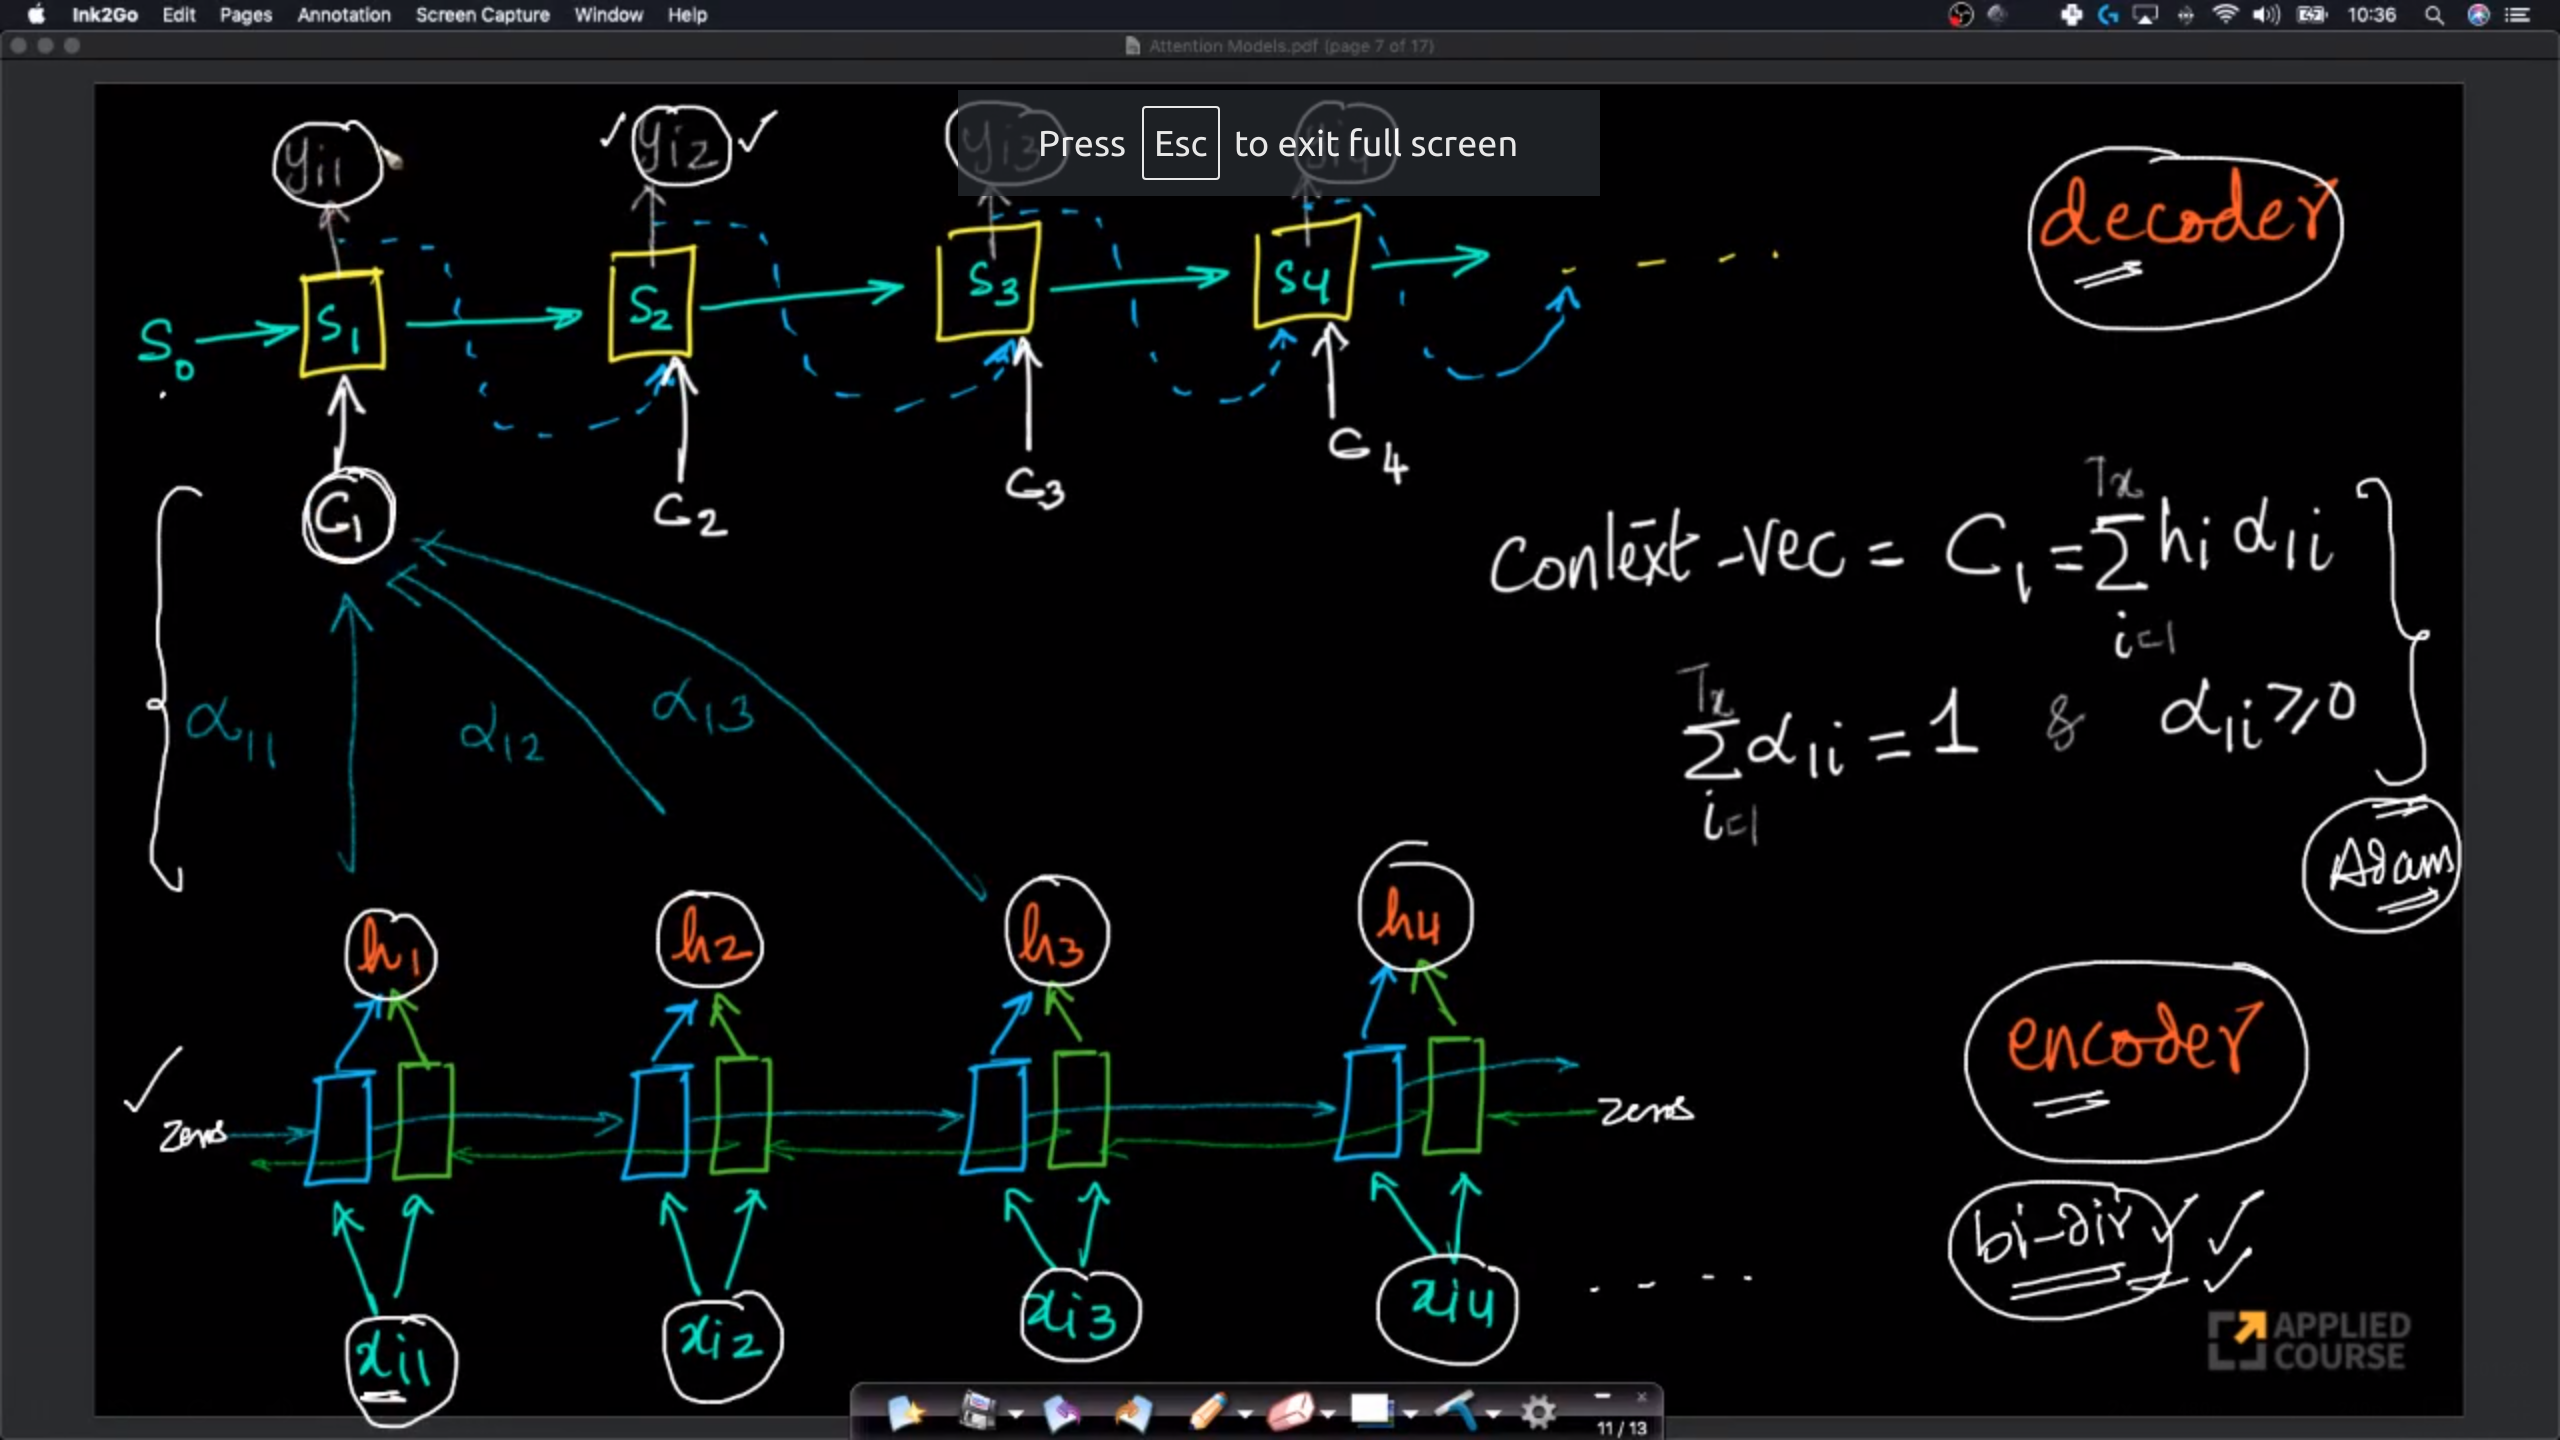 Ink2Go Edit Pages Annotation Screen Capture Window Help 10:36
Attention Models.pdf (page 7 of 17)
Press Esc to exit full screen
yi1 yi2 yi3 yi4
decoder
S0 S1 S2 S3 S4
C1 C2 C3 C4
Context-vec = C1 = Σ hi α1i
Tx
i=1
α11 α12 α13
Tx
Σ α1i = 1 & α1i ≥ 0
i=1
Adam
h1 h2 h3 h4
encoder
zeros zeros
bi-dir
xi1 xi2 xi3 xi4
APPLIED
COURSE
11 / 13